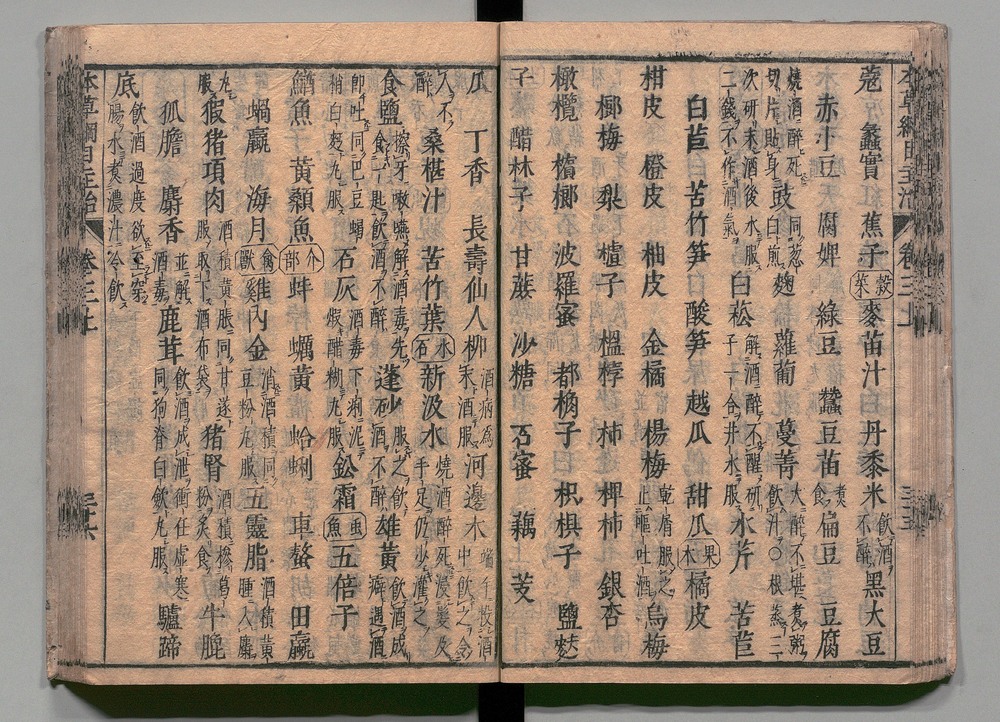 蔻 蠡實 蕉子 穀菜 麥苗汁 丹黍米 飲酒不醉 黑大豆
赤小豆 腐婢 綠豆 蠶豆苗 煮食 扁豆 豆腐
燒酒醉死切片貼身 豉 同葱白煎 麴 蘿蔔 蔓菁 大醉不堪煮粥飲汁○根蒸三
次研末酒後水服二錢不作酒氣 白菘 子一合井水服 解酒醉不醒研 水芹 苦苣
白苣 苦竹笋 酸笋 越瓜 甜瓜 果木 橘皮
柑皮 橙皮 柚皮 金橘 楊梅 乾屑服之止嘔吐酒 烏梅
榔梅 梨 樝子 榲桲 柿 椑柿 銀杏
橄欖 檳榔 波羅蜜 都桷子 枳椇子 鹽麩
子 醋林子 甘蔗 沙糖 石蜜 藕 芰
瓜 丁香 長壽仙人柳 酒病為末酒服 河邊木 端午投酒中飲之令
人不醉 桑椹汁 苦竹葉 水石 新汲水 燒酒醉死浸髮及手足仍少灌之
食鹽 擦牙漱嚥解酒毒先食一匙飲酒不醉 蓬砂 服之飲酒不醉 雄黃 飲酒成癖遇酒
即吐同巴豆蝎梢白麪丸服 石灰 酒毒下痢泥煅醋糊丸服 鉛霜 虫魚 五倍子
鰌魚 黃顙魚 介部 蚌 蠣黃 蛤蜊 車螯 田蠃
蝸蠃 海月 禽獸 雞內金 消酒積同豆粉丸服 五靈脂 酒積黃腫入麝
丸服 猳猪項肉 酒積黃脹同甘遂服取下酒布袋 猪腎 酒積摻葛粉炙食 牛膍
狐膽 麝香 並解酒毒 鹿茸 飲酒成泄衝任虛寒同狗脊白飲丸服 驢蹄
底 飲酒過度欲至穿腸水煮濃汁冷飲
本草綱目主治
卷三上